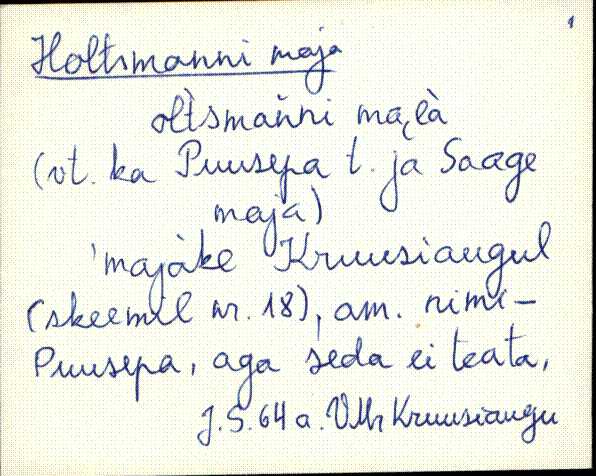 1
Holtsmanni maja
olt̀smañni maià
(vt. ka Puusepa t. ja Saage
maja)
'majàke Kruusiaugul
(skeemil nr. 18), am. nimi –
Puusepa, aga seda ei teata,
J.S. 64 a. VMr Kruusiaugu